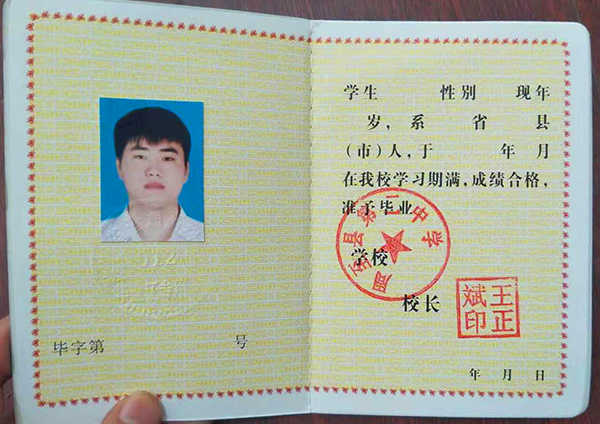 毕字第 号
学生 性别 现年
岁，系 省 县
（市）人，于 年 月
在我校学习期满，成绩合格，
准予毕业
学校
校长
年 月 日
周至县第二中学
王正斌印